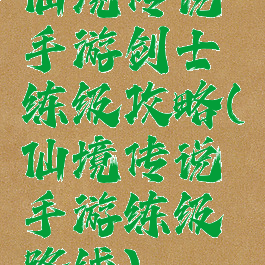 仙境传说
手游剑士
练级攻略(
仙境传说
手游练级
路线)